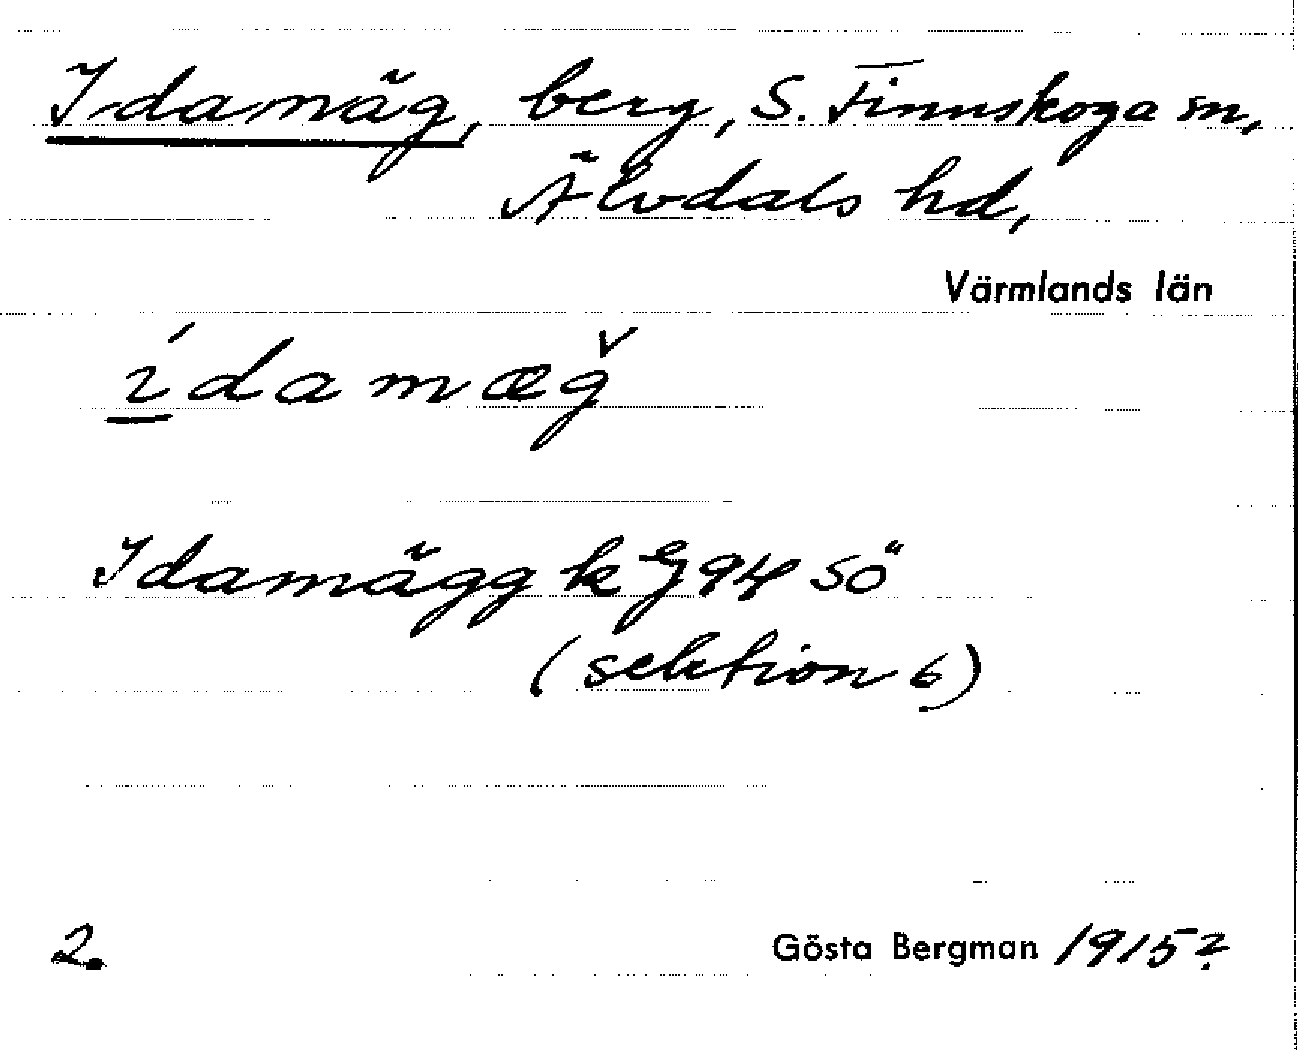 Idamäg, berg, S. Finnskoga sn,
Älvdals hd,
Värmlands län
ídamæǧ
Idamägg k G 94 SÖ
(sektion 6)
2.
Gösta Bergman 1915?